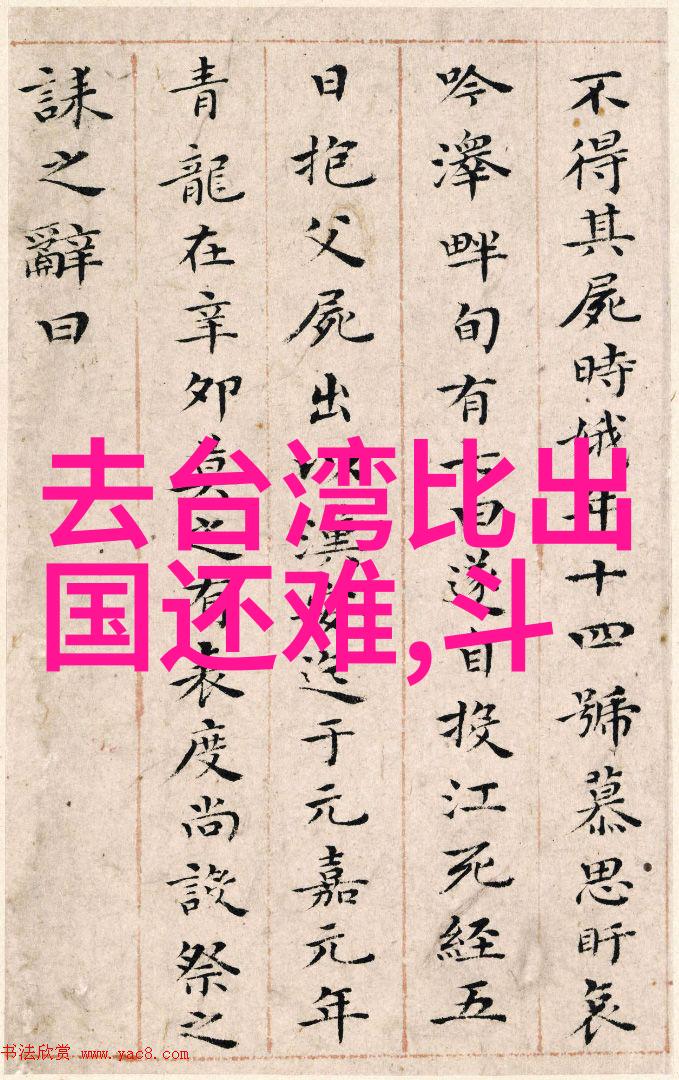 不得其屍時娥年十四號慕思盱哀
吟澤畔旬有遂自投江死經五
日抱父屍出漢迄于元嘉元年
青龍在辛卯莫之有表度尚設祭之
誄之辭曰
去台湾比出
国还难,斗
书法欣赏 www.yac8.com